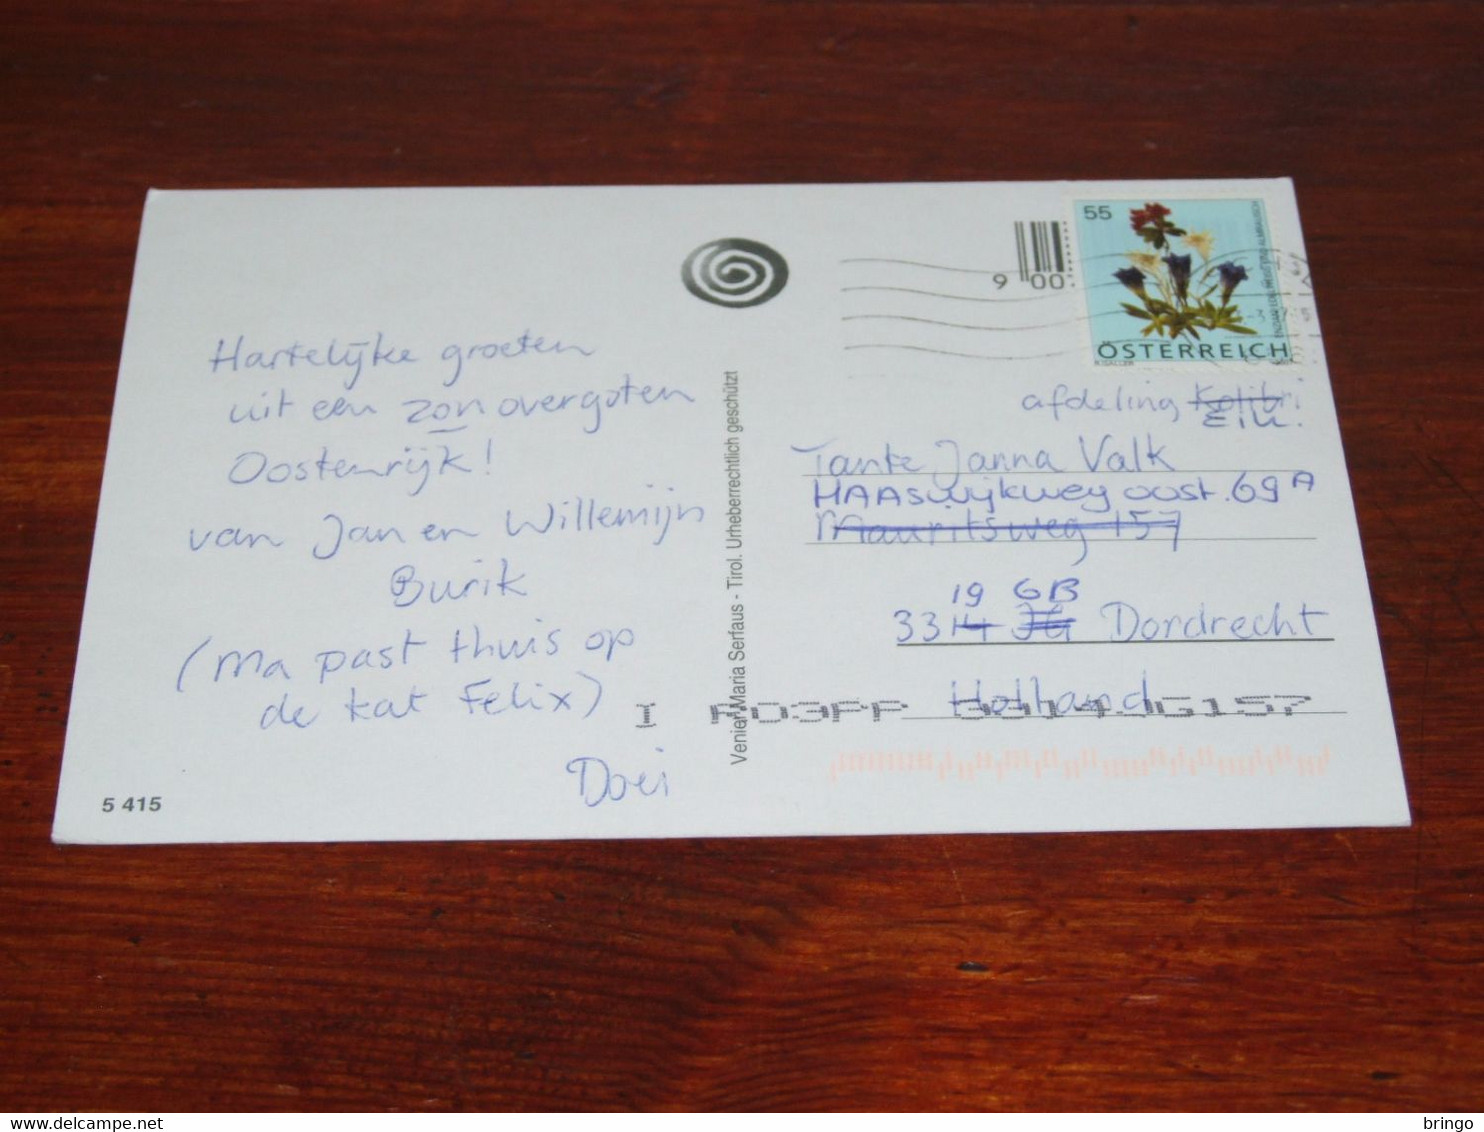 Hartelijke groeten
uit een zonovergoten
Oostenrijk!
van Jan en Willemijn
Burik
(Ma past thuis op
de kat Felix)
Doei
5 415
Venier Maria Serfaus - Tirol. Urheberrechtlich geschützt
9 00
55
ÖSTERREICH
afdeling Kolibri
Tante Janna Valk
HAASwijkweg oost. 69 A
Mauritsweg 157
19 GB
3314 JG Dordrecht
Holland
3314JG157
delcampe.net
bringo